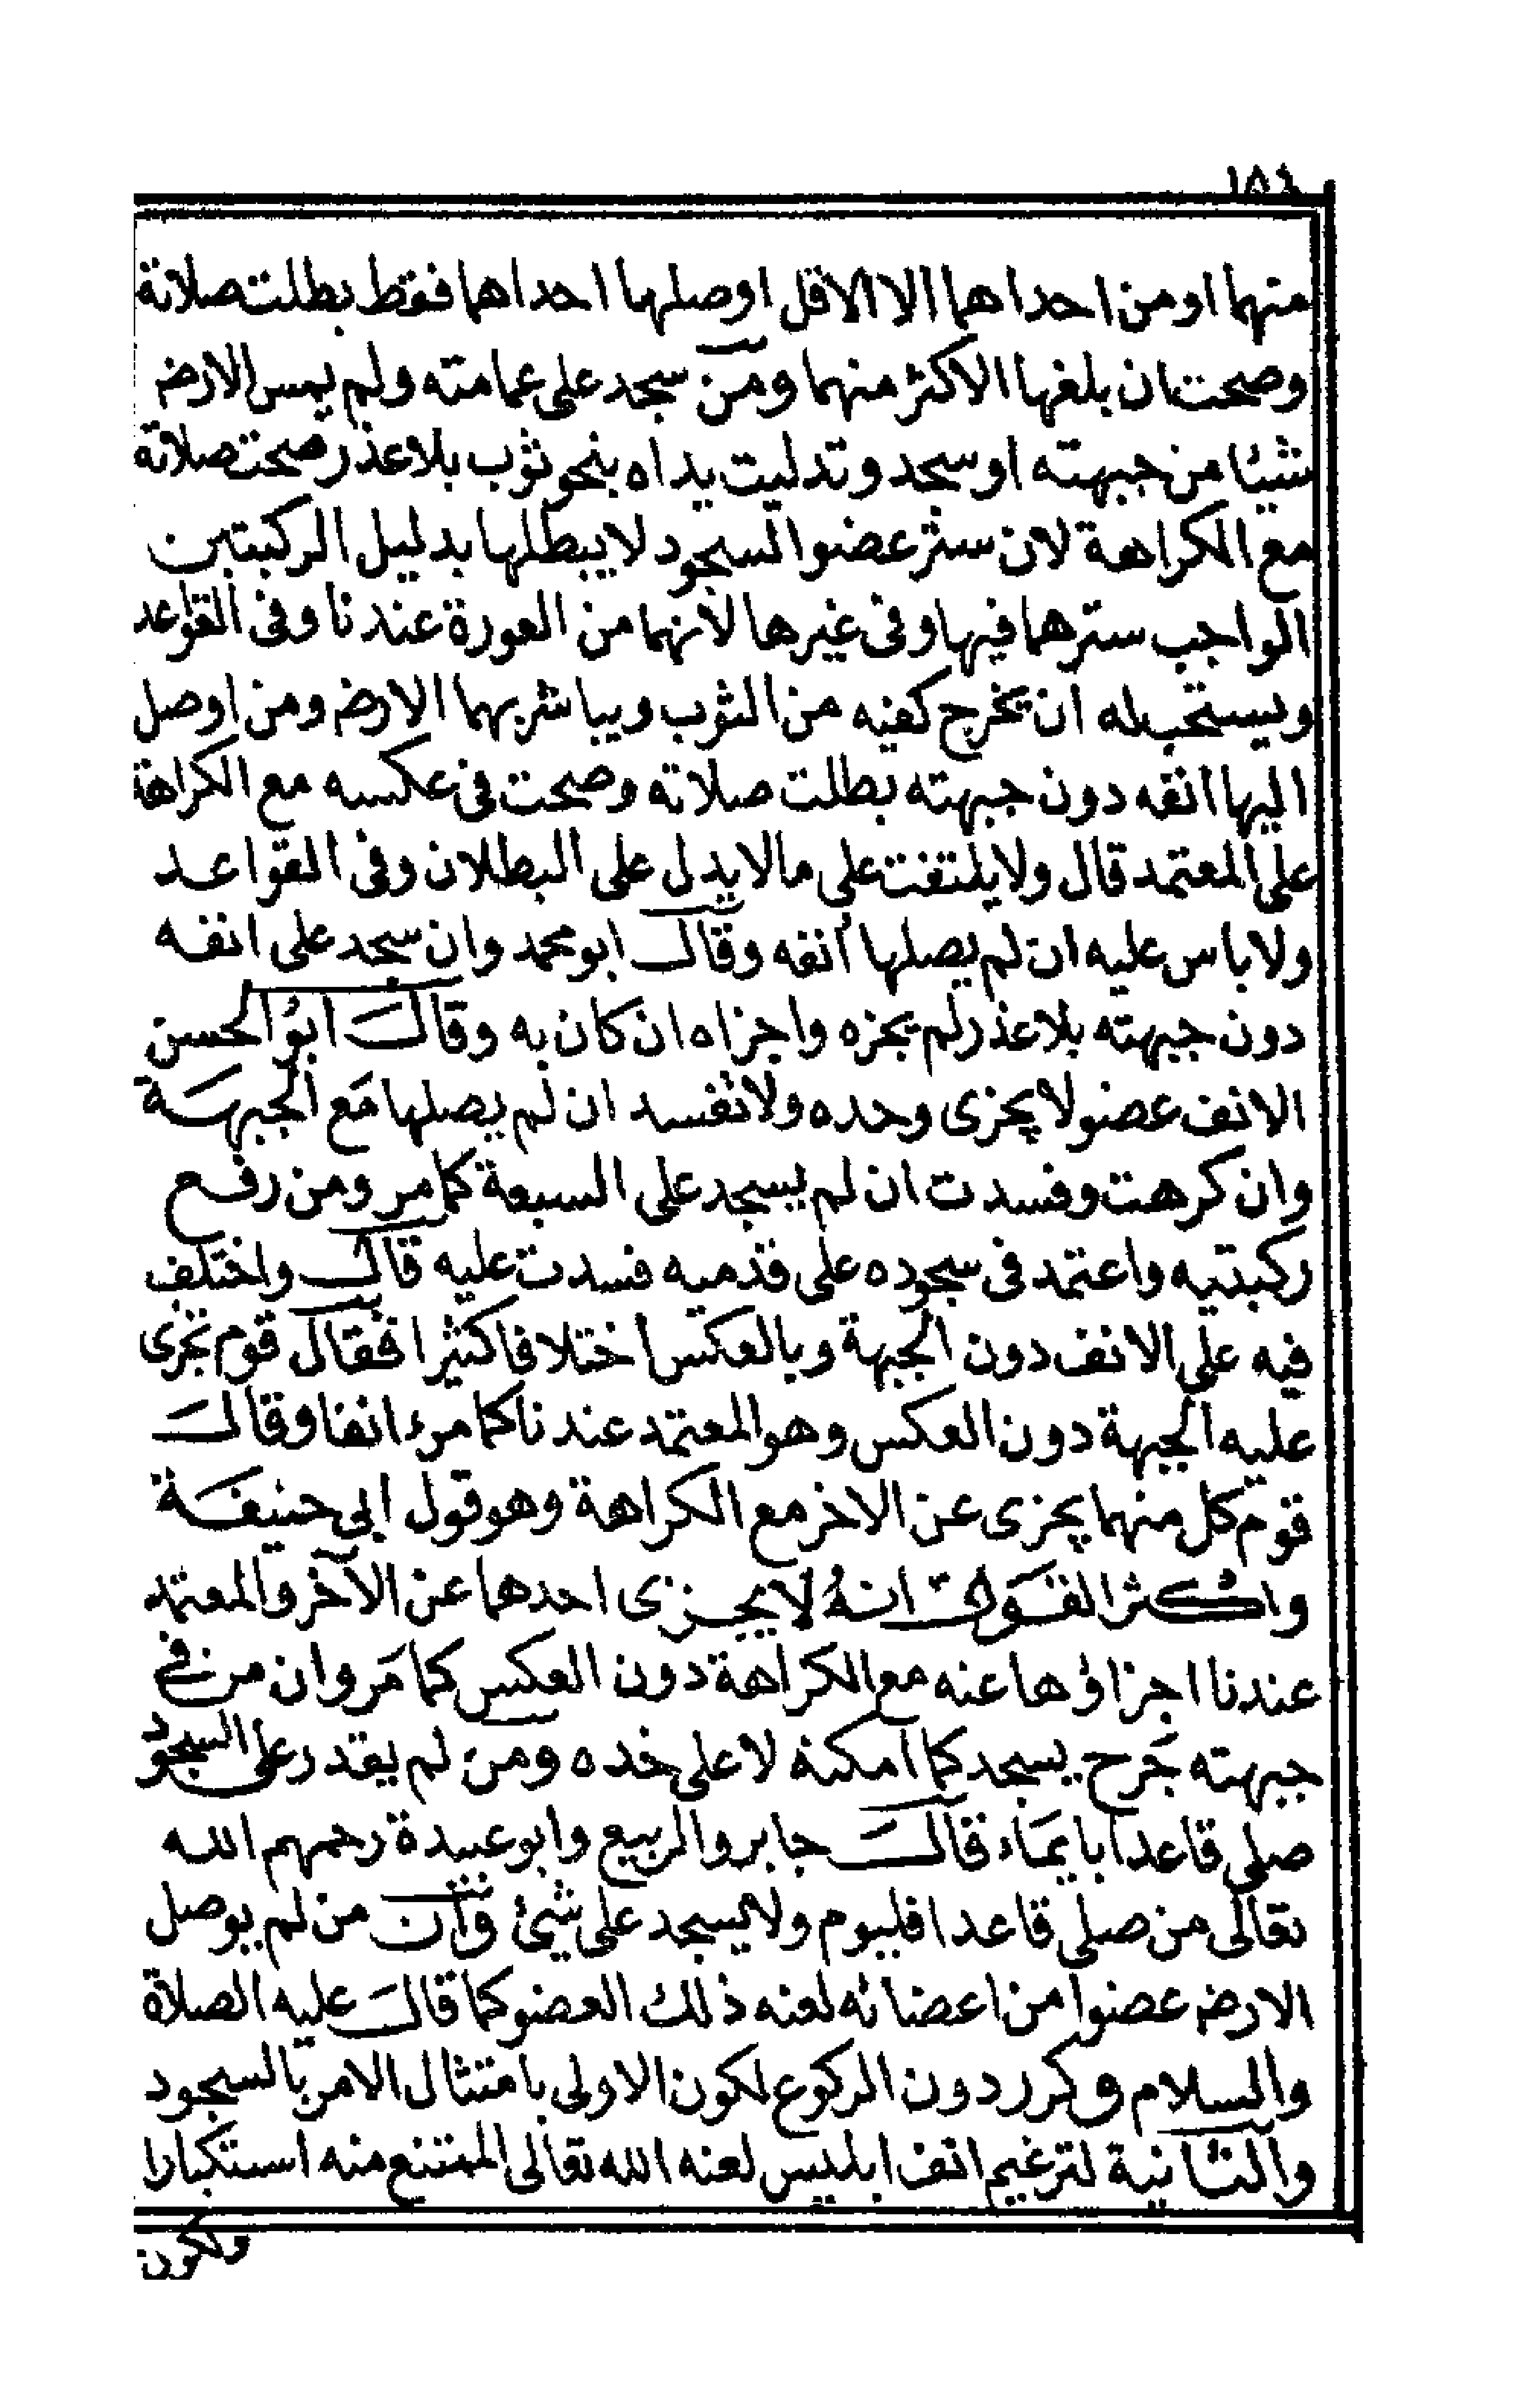 منهما او من احداهما الا الاقل او صلها احداهما فقط بطلت صلاته
وصحت ان بلغها الاكثر منهما ومن سجد على عمامته ولم يمس الارض
شيئا من جبهته او سجد وتدليت يداه بنحو ثوب بلا عذر صحت صلاته
مع الكراهة لان ستر عضو السجود لا يبطلها بدليل الركبتين
الواجب سترهما فيها وفى غيرها لانهما من العورة عندنا وفى القواعد
ويستحب له ان يخرج كفيه من الثوب ويباشر بهما الارض ومن اوصل
اليها انفه دون جبهته بطلت صلاته وصحت فى عكسه مع الكراهة
على المعتمد قال ولا يلتفت على ما لا يدل على البطلان وفى القواعد
ولا باس عليه ان لم يصلها أنفه وقال ابو محمد وان سجد على انفه
دون جبهته بلا عذر لم يجزه واجزاه ان كان به وقال ابو الحسن
الانف عضو لا يجزى وحده ولا تفسد ان لم يصلها مع الجبهة
وان كرهت وفسدت ان لم يسجد على السبعة كما مر ومن رفع
ركبتيه واعتمد فى سجوده على قدميه فسدت عليه قال واختلف
فيه على الانف دون الجبهة وبالعكس اختلافا كثيرا فقال قوم تجزى
عليه الجبهة دون العكس وهو المعتمد عندنا كما مرء انفا وقال
قوم كل منهما يجزى عن الاخر مع الكراهة وهو قول ابى حنيفة
واكثر القول انه لا يجزى احدهما عن الآخر والمعتمد
عندنا اجزاؤها عنه مع الكراهة دون العكس كما مر وان من فى
جبهته جرح يسجد كما امكنه لا على خده ومن لم يقدر على السجود
صلى قاعدا بايماء قال جابر والربيع وابو عبيدة رحمهم الله
تعالى من صلى قاعدا فليوم ولا يسجد على شيئ وان من لم يوصل
الارض عضوا من اعضائه لعنه ذلك العضو كما قال عليه الصلاة
والسلام وكرر دون الركوع لكون الاولى بامتثال الامر بالسجود
والثانية لترغيم انف ابليس لعنه الله تعالى الممتنع منه استكبارا
ولكون